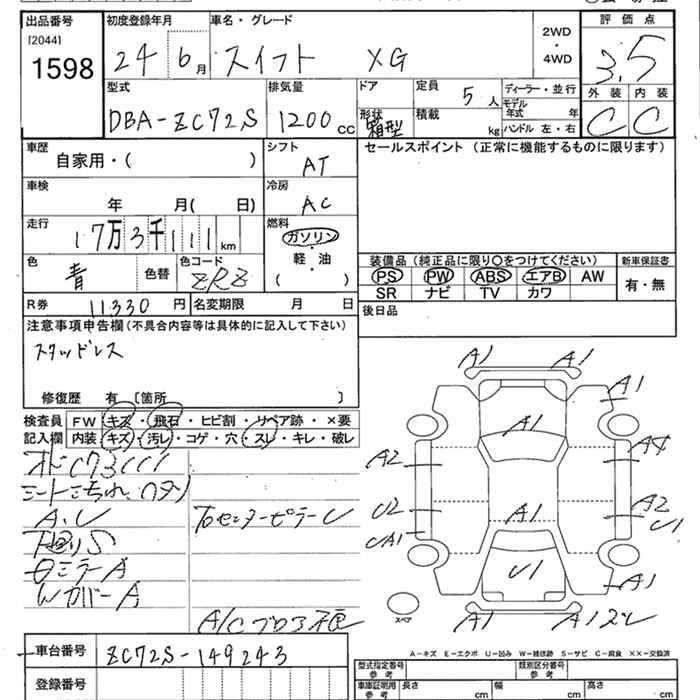 出品番号 初度登録年月 車名・グレード 評価点
[2044]
1598 24 6月 スイフト XG 2WD・4WD 3.5
型式 排気量 ドア 定員 5人 ディーラー・並行 外装 内装
DBA-ZC72S 1200cc 形状 箱型 積載 kg モデル年式 年 C C
ハンドル 左・右
車歴 シフト セールスポイント (正常に機能するものに限ります)
自家用・( ) AT
車検 冷房
年 月( 日) AC
走行 燃料
17万3千111km ガソリン・軽・油
( )
色 色コード
青 色替 ZRZ
装備品 (純正品に限り○をつけてください) 新車保証書
PS PW ABS エアB AW 有・無
SR ナビ TV カワ
R券 11330円 名変期限 月 日 後日品
注意事項申告欄(不具合内容等は具体的に記入して下さい)
スタッドレス
修復歴 有 〔箇所 〕
検査員 FW キズ・飛石・ヒビ割・リペア跡・×要
記入欄 内装 キズ・汚レ・コゲ・穴・スレ・キレ・破レ
A.U
ミラーA
WカバーA
A1 A1
A1
A1
A2 A4
U2 A1 A2
U1
UA1
U1
A1
A1
スペア
A-キズ E-エクボ U-凹み W-補修跡 S-サビ C-腐食 ××-交換済
車台番号 ZC72S-149243
登録番号
型式指定番号 参考 類別区分番号 参考
車庫証明用 参考 長さ cm 幅 cm 高さ cm